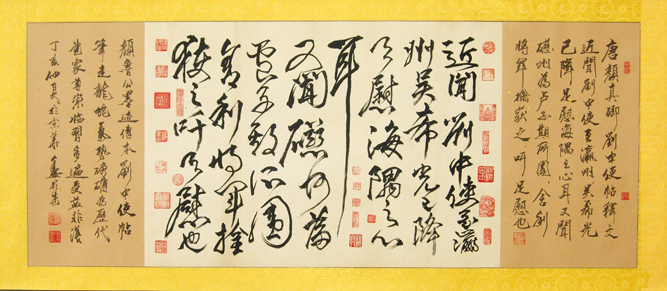 唐顏真卿 劉中使帖釋文
近聞劉中使至瀛州吳希光
已降足慰海隅之心耳又聞
磁州為盧子期所圍舍利
將軍擒獲之吁足慰也
近聞劉中使至瀛
州吳希光已降
足慰海隅之心
耳
又聞磁州為
盧子期所圍
舍利將軍擒
獲之吁足慰也
顏魯公墨迹傳本劉中使帖
筆走龍蛇氣勢磅礴為歷代
書家尊崇臨習多遍
丁亥仲夏於京華